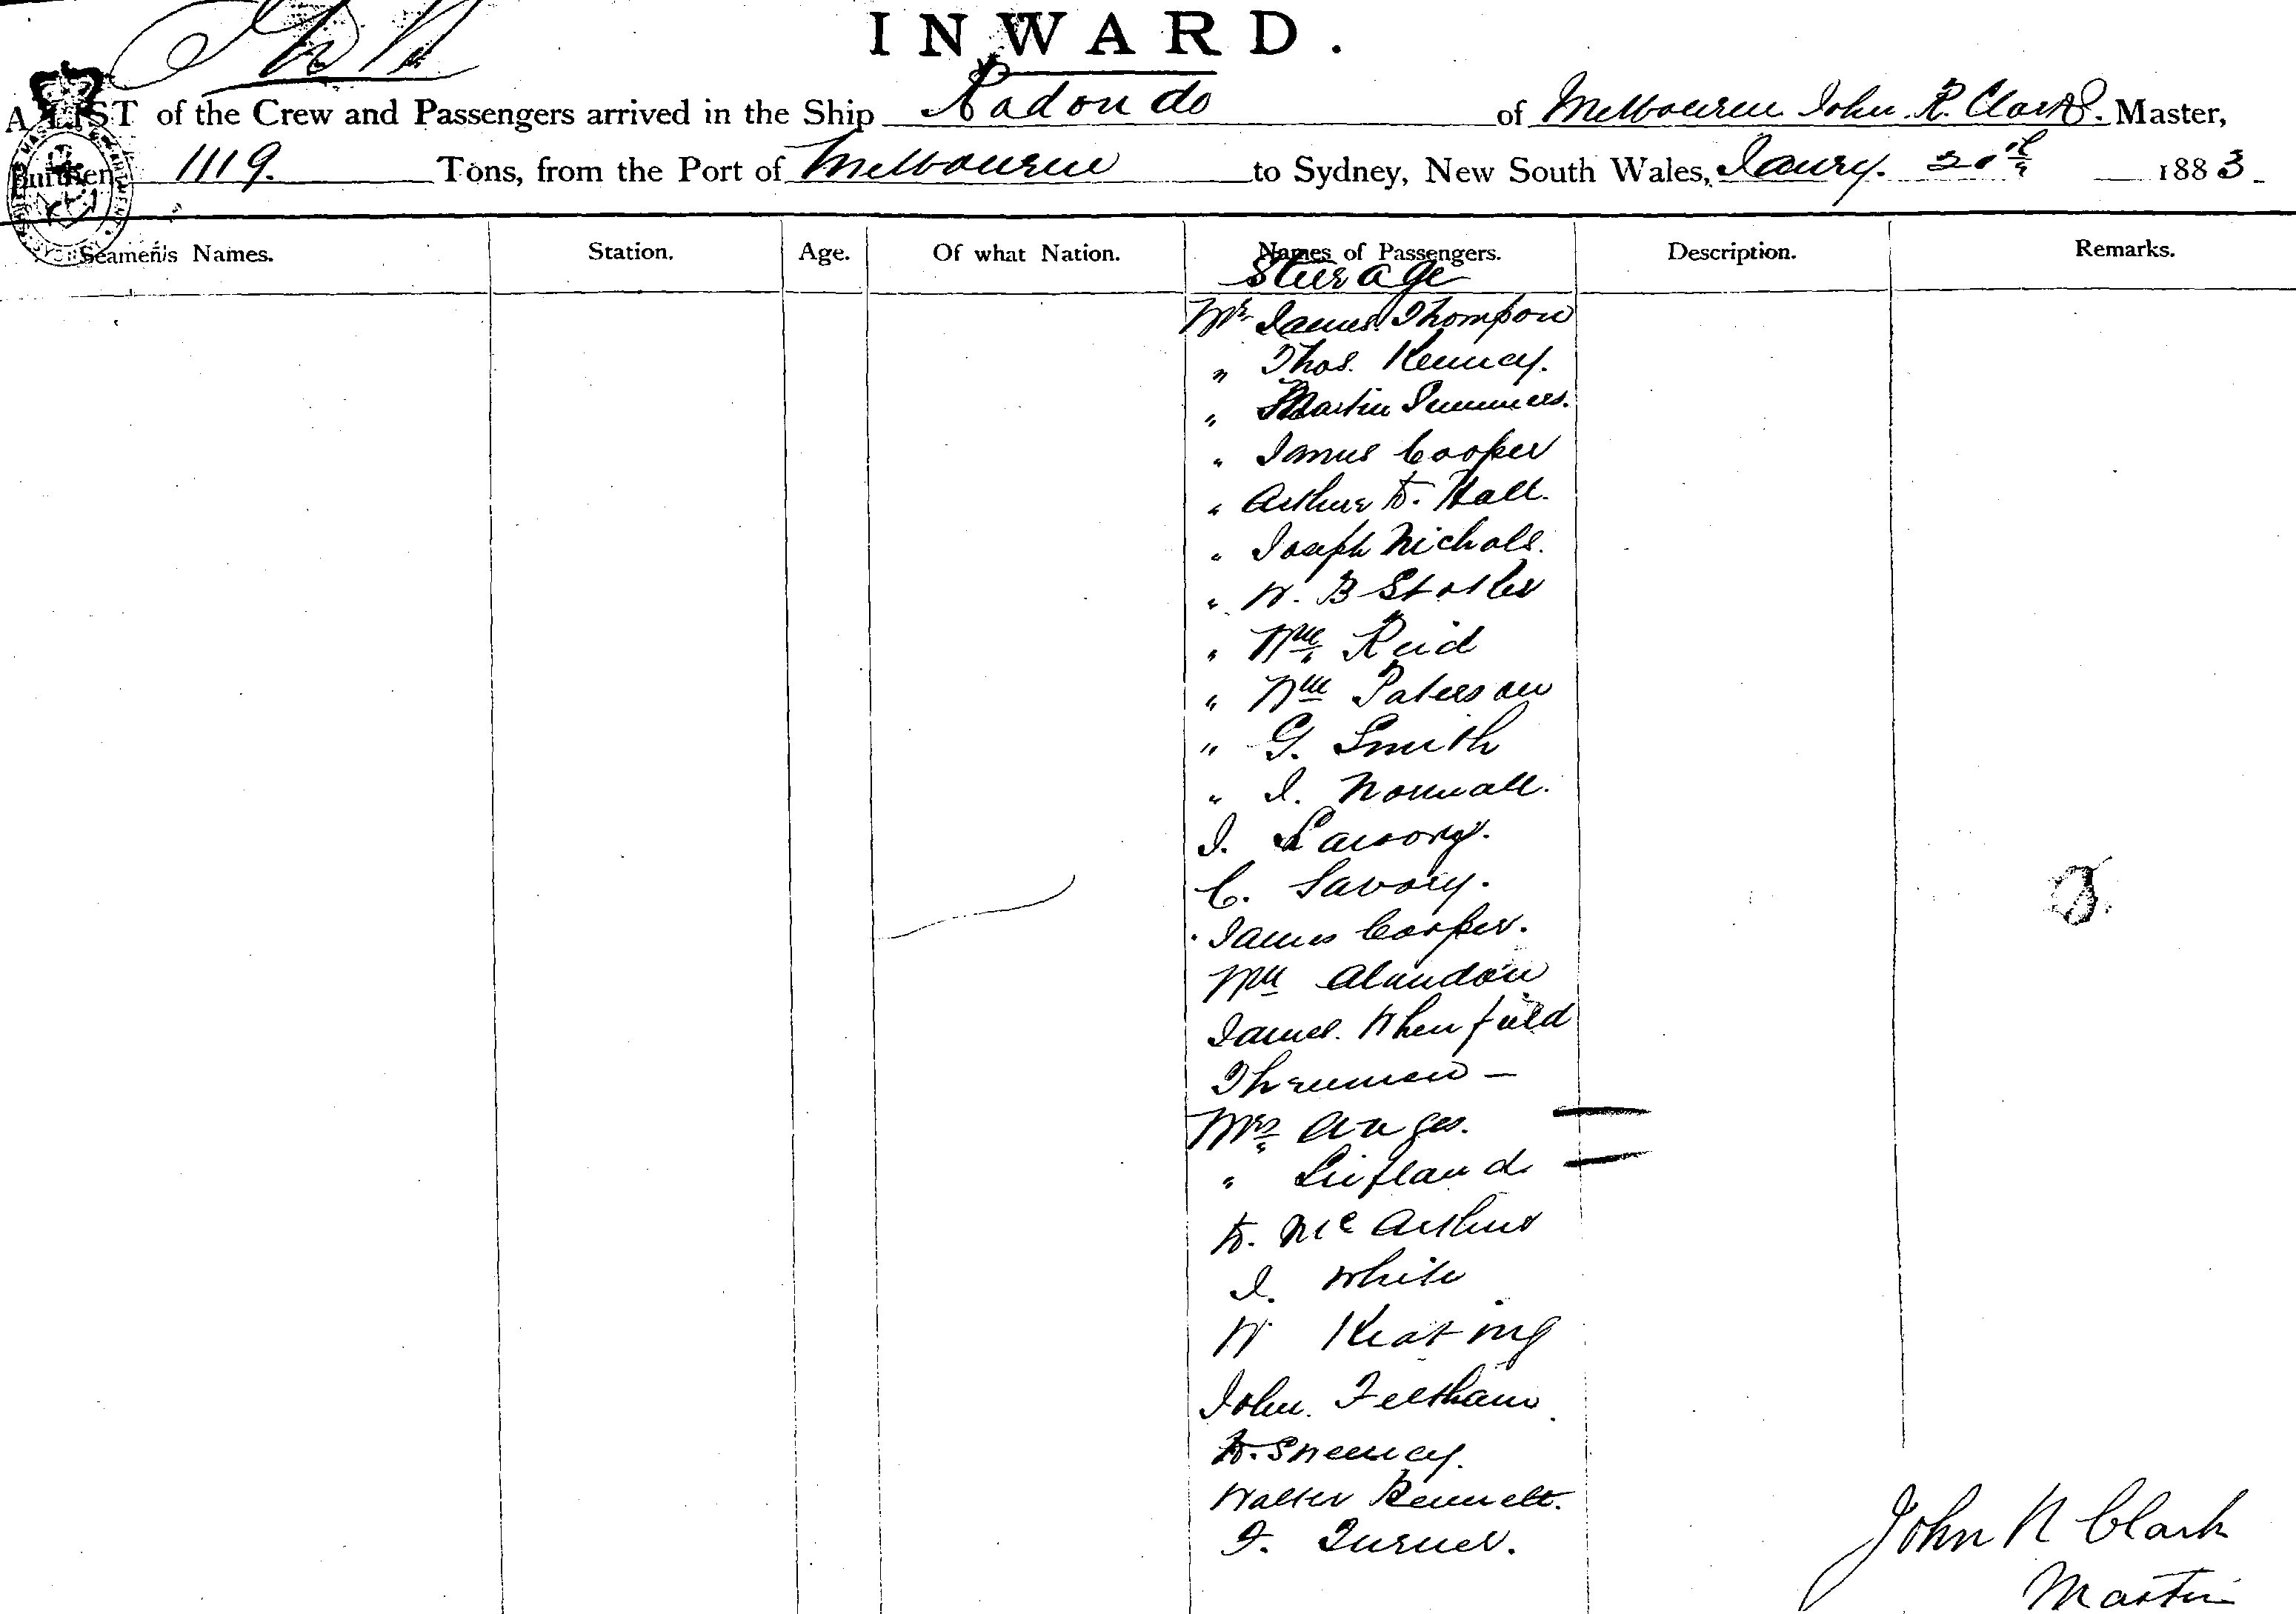 INWARD.
A LIST of the Crew and Passengers arrived in the Ship Rodondo of Melbourne John. R. Clark. Master,
Burthen 1119. Tons, from the Port of Melbourne to Sydney, New South Wales, Jaury. 20th 1883
Seamen's Names. Station. Age. Of what Nation. Names of Passengers. Description. Remarks.
Steerage
Mr James Thompson
" Thos. Kenney.
" Martin Summers.
" James Cooper
" Arthur H. Hall.
" Joseph Nicholl.
" W. B Stoker
" Wm Reid
" Wm Paterson
" G. Smith
" J. Normall.
J.
C. Savory.
James Cooper.
Wm
James. Whenfield
Mrs
"
H. McArthur
J. White
W Keating
John. Feltham
H. Sweeney.
Walter Bennett.
F. Turner.
John R Clark
Master